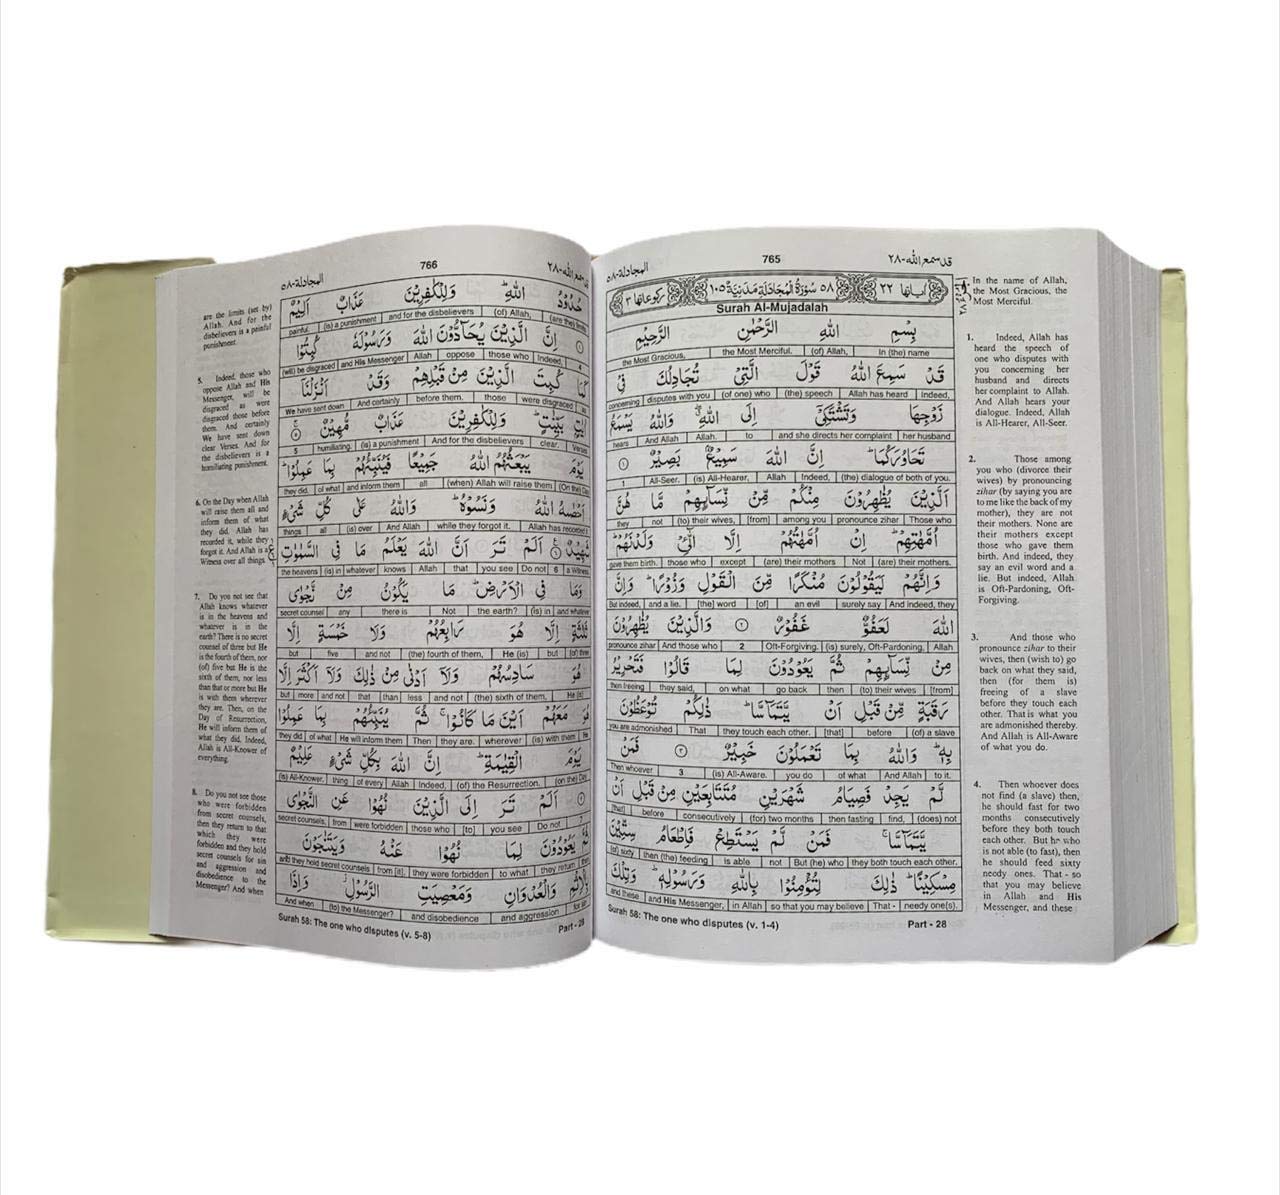 المجادلة-٥٨ 765 قد سمع الله-٢٨
اٰیاتها ٢٢ ٥٨ سُوْرَةُ الْمُجَادَلَةِ مَدَنِيَّةٌ ١٠٥ رکوعاتها ٣
Surah Al-Mujadalah
بِسْمِ اللهِ الرَّحْمٰنِ الرَّحِيْمِ
the Most Gracious, the Most Merciful. (of) Allah, In (the) name
قَدْ سَمِعَ اللهُ قَوْلَ الَّتِيْ تُجَادِلُكَ فِيْ
concerning disputes with you (of one) who (the) speech Allah has heard Indeed,
زَوْجِهَا وَتَشْتَكِيْٓ اِلَى اللهِ وَاللهُ يَسْمَعُ
hears And Allah Allah. to and she directs her complaint her husband
تَحَاوُرَكُمَا اِنَّ اللهَ سَمِيْعٌۢ بَصِيْرٌ ١
1 All-Seer. (is) All-Hearer, Allah Indeed, (the) dialogue of both of you.
اَلَّذِيْنَ يُظٰهِرُوْنَ مِنْكُمْ مِّنْ نِّسَآئِهِمْ مَّا هُنَّ
they not (to) their wives, [from] among you pronounce zihar Those who
اُمَّهٰتِهِمْ اِنْ اُمَّهٰتُهُمْ اِلَّا الّٰٓـِٔيْ وَلَدْنَهُمْ
gave them birth. those who except (are) their mothers Not (are) their mothers.
وَاِنَّهُمْ لَيَقُوْلُوْنَ مُنْكَرًا مِّنَ الْقَوْلِ وَزُوْرًا وَاِنَّ
But indeed, and a lie. [the] word [of] an evil surely say And indeed, they
اللهَ لَعَفُوٌّ غَفُوْرٌ ٢ وَالَّذِيْنَ يُظٰهِرُوْنَ
pronounce zihar And those who 2 Oft-Forgiving. (is) surely, Oft-Pardoning, Allah
مِنْ نِّسَآئِهِمْ ثُمَّ يَعُوْدُوْنَ لِمَا قَالُوْا فَتَحْرِيْرُ
then freeing they said, on what go back then (to) their wives [from]
رَقَبَةٍ مِّنْ قَبْلِ اَنْ يَّتَمَآسَّا ذٰلِكُمْ تُوْعَظُوْنَ
you are admonished That they touch each other. [that] before (of) a slave
بِهٖ وَاللهُ بِمَا تَعْمَلُوْنَ خَبِيْرٌ ٣ فَمَنْ
Then whoever 3 (is) All-Aware. you do of what And Allah to it.
لَّمْ يَجِدْ فَصِيَامُ شَهْرَيْنِ مُتَتَابِعَيْنِ مِنْ قَبْلِ اَنْ
[that] before consecutively (for) two months then fasting find, (does) not
يَّتَمَآسَّا فَمَنْ لَّمْ يَسْتَطِعْ فَاِطْعَامُ سِتِّيْنَ
(of) sixty then (the) feeding is able not But (he) who they both touch each other.
مِسْكِيْنًا ذٰلِكَ لِتُؤْمِنُوْا بِاللهِ وَرَسُوْلِهٖ وَتِلْكَ
and these and His Messenger, in Allah so that you may believe That - needy one(s).
Surah 58: The one who disputes (v. 1-4) Part - 28
In the name of Allah,
the Most Gracious, the
Most Merciful.
1. Indeed, Allah has
heard the speech of
one who disputes with
you concerning her
husband and directs
her complaint to Allah.
And Allah hears your
dialogue. Indeed, Allah
is All-Hearer, All-Seer.
2. Those among
you who (divorce their
wives) by pronouncing
zihar (by saying you are
to me like the back of my
mother), they are not
their mothers. None are
their mothers except
those who gave them
birth. And indeed, they
say an evil word and a
lie. But indeed, Allah
is Oft-Pardoning, Oft-
Forgiving.
3. And those who
pronounce zihar to their
wives, then (wish to) go
back on what they said,
then (for them is)
freeing of a slave
before they touch each
other. That is what you
are admonished thereby.
And Allah is All-Aware
of what you do.
4. Then whoever does
not find (a slave) then,
he should fast for two
months consecutively
before they both touch
each other. But he who
is not able (to fast), then
he should feed sixty
needy ones. That - so
that you may believe
in Allah and His
Messenger, and these
المجادلة-٥٨ 766 قد سمع الله-٢٨
حُدُوْدُ اللهِ وَلِلْكٰفِرِيْنَ عَذَابٌ اَلِيْمٌ
painful. (is) a punishment and for the disbelievers (of) Allah, (are the) limits
اِنَّ الَّذِيْنَ يُحَآدُّوْنَ اللهَ وَرَسُوْلَهٗ كُبِتُوْا
(will) be disgraced and His Messenger Allah oppose those who Indeed, 4
كَمَا كُبِتَ الَّذِيْنَ مِنْ قَبْلِهِمْ وَقَدْ اَنْزَلْنَآ
We have sent down And certainly before them. those were disgraced as
اٰيٰتٍۭ بَيِّنٰتٍ وَلِلْكٰفِرِيْنَ عَذَابٌ مُّهِيْنٌ ٥
5 humiliating. (is) a punishment And for the disbelievers clear. Verses
يَوْمَ يَبْعَثُهُمُ اللهُ جَمِيْعًا فَيُنَبِّئُهُمْ بِمَا عَمِلُوْا
they did. of what and inform them all (when) Allah will raise them (On the) Day
اَحْصٰىهُ اللهُ وَنَسُوْهُ وَاللهُ عَلٰى كُلِّ شَيْءٍ
things all (is) over And Allah while they forgot it. Allah has recorded it
شَهِيْدٌ ٦ اَلَمْ تَرَ اَنَّ اللهَ يَعْلَمُ مَا فِي السَّمٰوٰتِ
the heavens (is) in whatever knows Allah that you see Do not 6 a Witness.
وَمَا فِي الْاَرْضِ مَا يَكُوْنُ مِنْ نَّجْوٰى
secret counsel any there is Not the earth? (is) in and whatever
ثَلٰثَةٍ اِلَّا هُوَ رَابِعُهُمْ وَلَا خَمْسَةٍ اِلَّا
but five and not (the) fourth of them, He (is) but (of) three
هُوَ سَادِسُهُمْ وَلَآ اَدْنٰى مِنْ ذٰلِكَ وَلَآ اَكْثَرَ اِلَّا
but more and not that than less and not (the) sixth of them, He (is)
هُوَ مَعَهُمْ اَيْنَ مَا كَانُوْا ثُمَّ يُنَبِّئُهُمْ بِمَا عَمِلُوْا
they did of what He will inform them Then they are. wherever (is) with them He
يَوْمَ الْقِيٰمَةِ اِنَّ اللهَ بِكُلِّ شَيْءٍ عَلِيْمٌ
(is) All-Knower. thing of every Allah Indeed, (of) the Resurrection. (on the) Day
٧ اَلَمْ تَرَ اِلَى الَّذِيْنَ نُهُوْا عَنِ النَّجْوٰى
secret counsels, from were forbidden those who [to] you see Do not 7
ثُمَّ يَعُوْدُوْنَ لِمَا نُهُوْا عَنْهُ وَيَتَنٰجَوْنَ
and they hold secret counsels from [it], they were forbidden to what they return then
بِالْاِثْمِ وَالْعُدْوَانِ وَمَعْصِيَتِ الرَّسُوْلِ وَاِذَا
And when (to) the Messenger? and disobedience and aggression for sin
Surah 58: The one who disputes (v. 5-8) Part - 28
are the limits (set by)
Allah. And for the
disbelievers is a painful
punishment.
5. Indeed, those who
oppose Allah and His
Messenger, will be
disgraced as were
disgraced those before
them. And certainly
We have sent down
clear Verses. And for
the disbelievers is a
humiliating punishment.
6. On the Day when Allah
will raise them all and
inform them of what
they did. Allah has
recorded it, while they
forgot it. And Allah is a
Witness over all things.
7. Do you not see that
Allah knows whatever
is in the heavens and
whatever is in the
earth? There is no secret
counsel of three but He
is the fourth of them, nor
(of) five but He is the
sixth of them, nor less
than that or more but He
is with them wherever
they are. Then, on the
Day of Resurrection,
He will inform them of
what they did. Indeed,
Allah is All-Knower of
everything.
8. Do you not see those
who were forbidden
from secret counsels,
then they return to that
which they were
forbidden and they hold
secret counsels for sin
and aggression and
disobedience to the
Messenger? And when